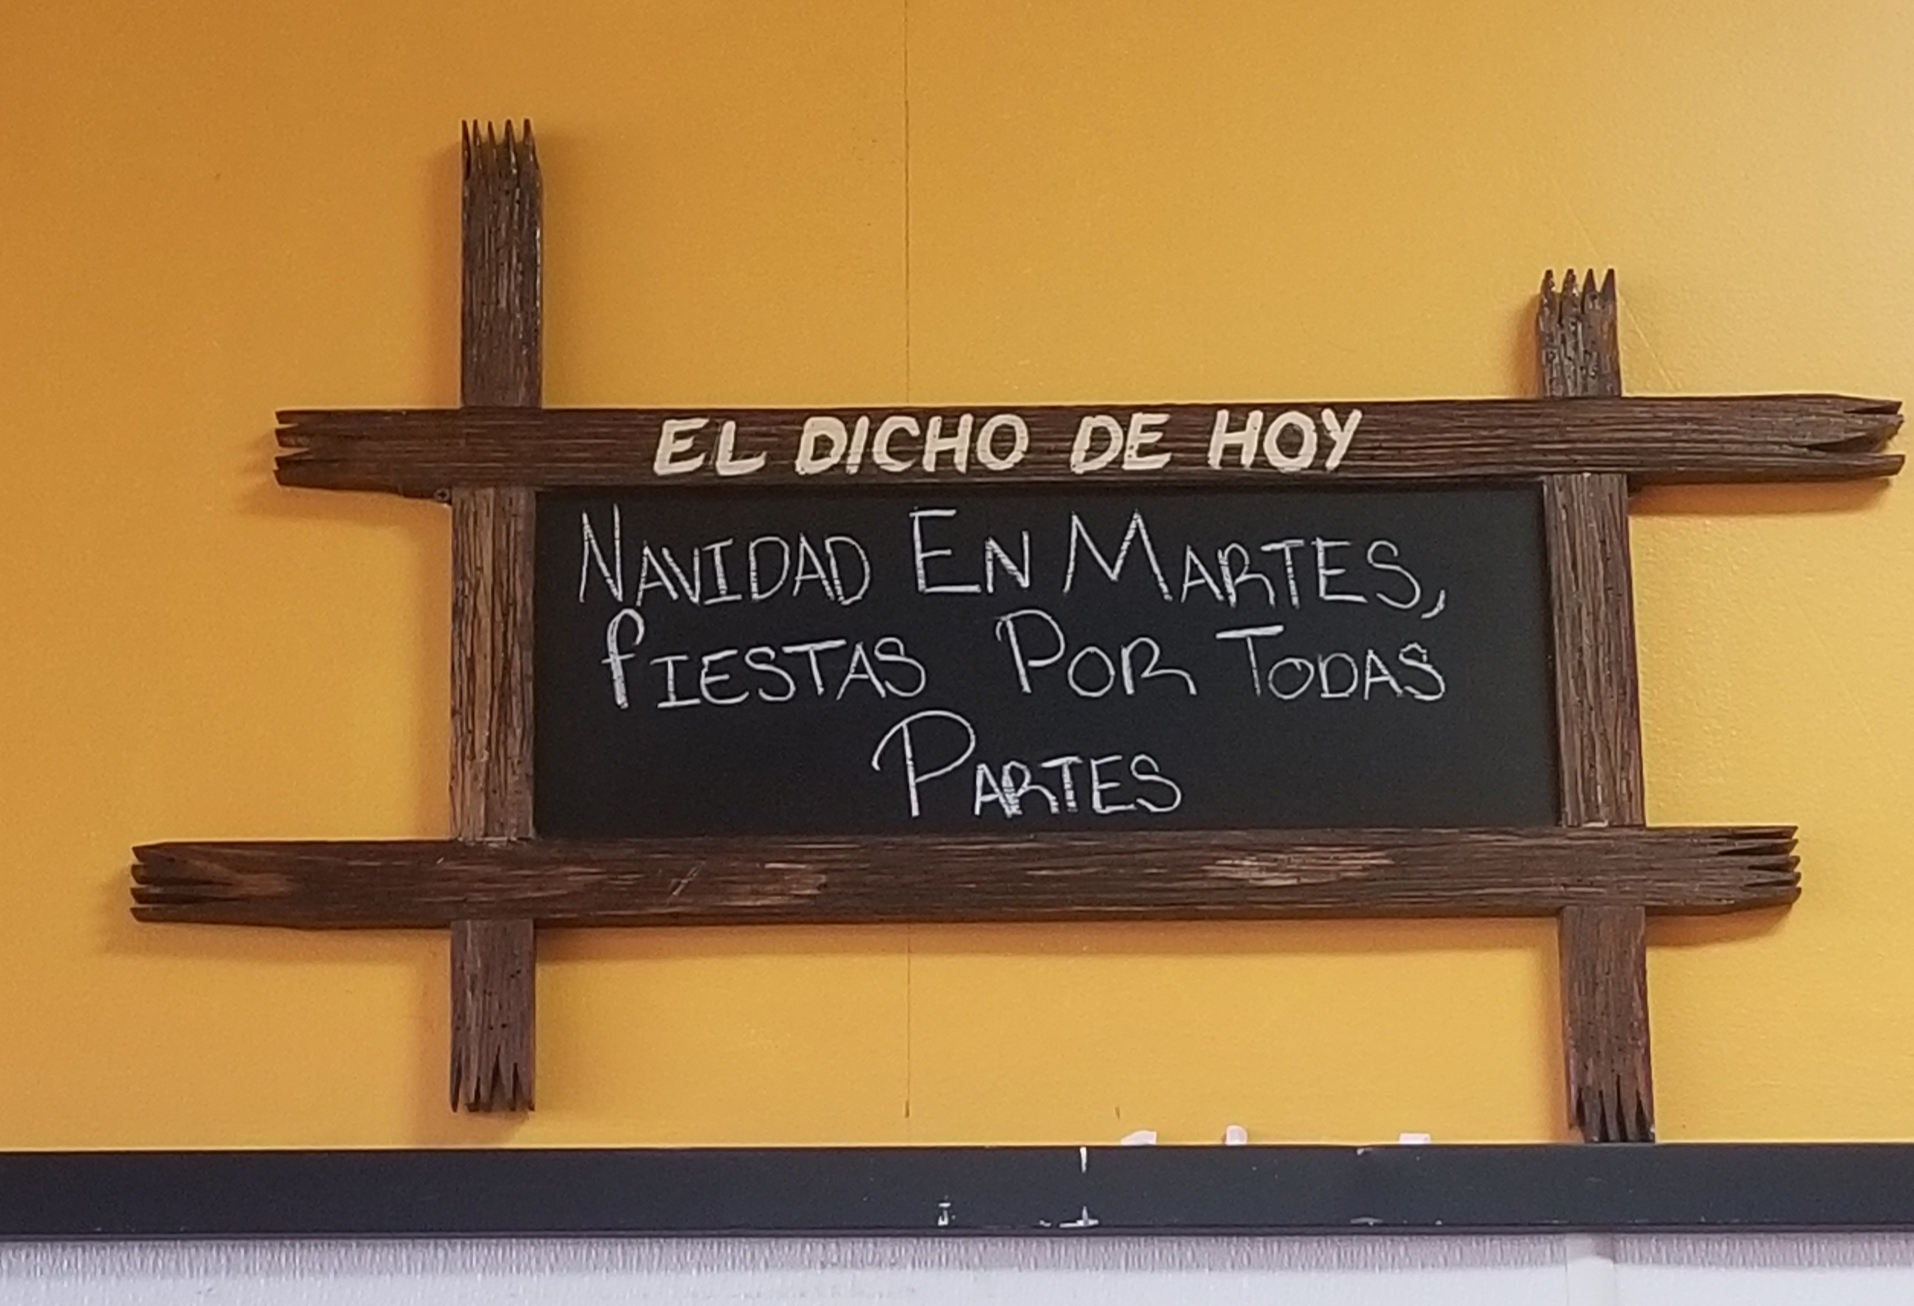 EL DICHO DE HOY
NAVIDAD EN MARTES,
fIESTAS POR TODAS
PARTES